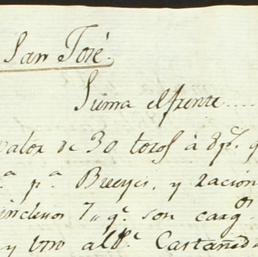 San José.
Suma el frente....
valor de 30 toros á 8 p.s q
p.a Bueyes, y racion
inclusos 7,, q.e son carg.os
y uno al P.e Castañeda